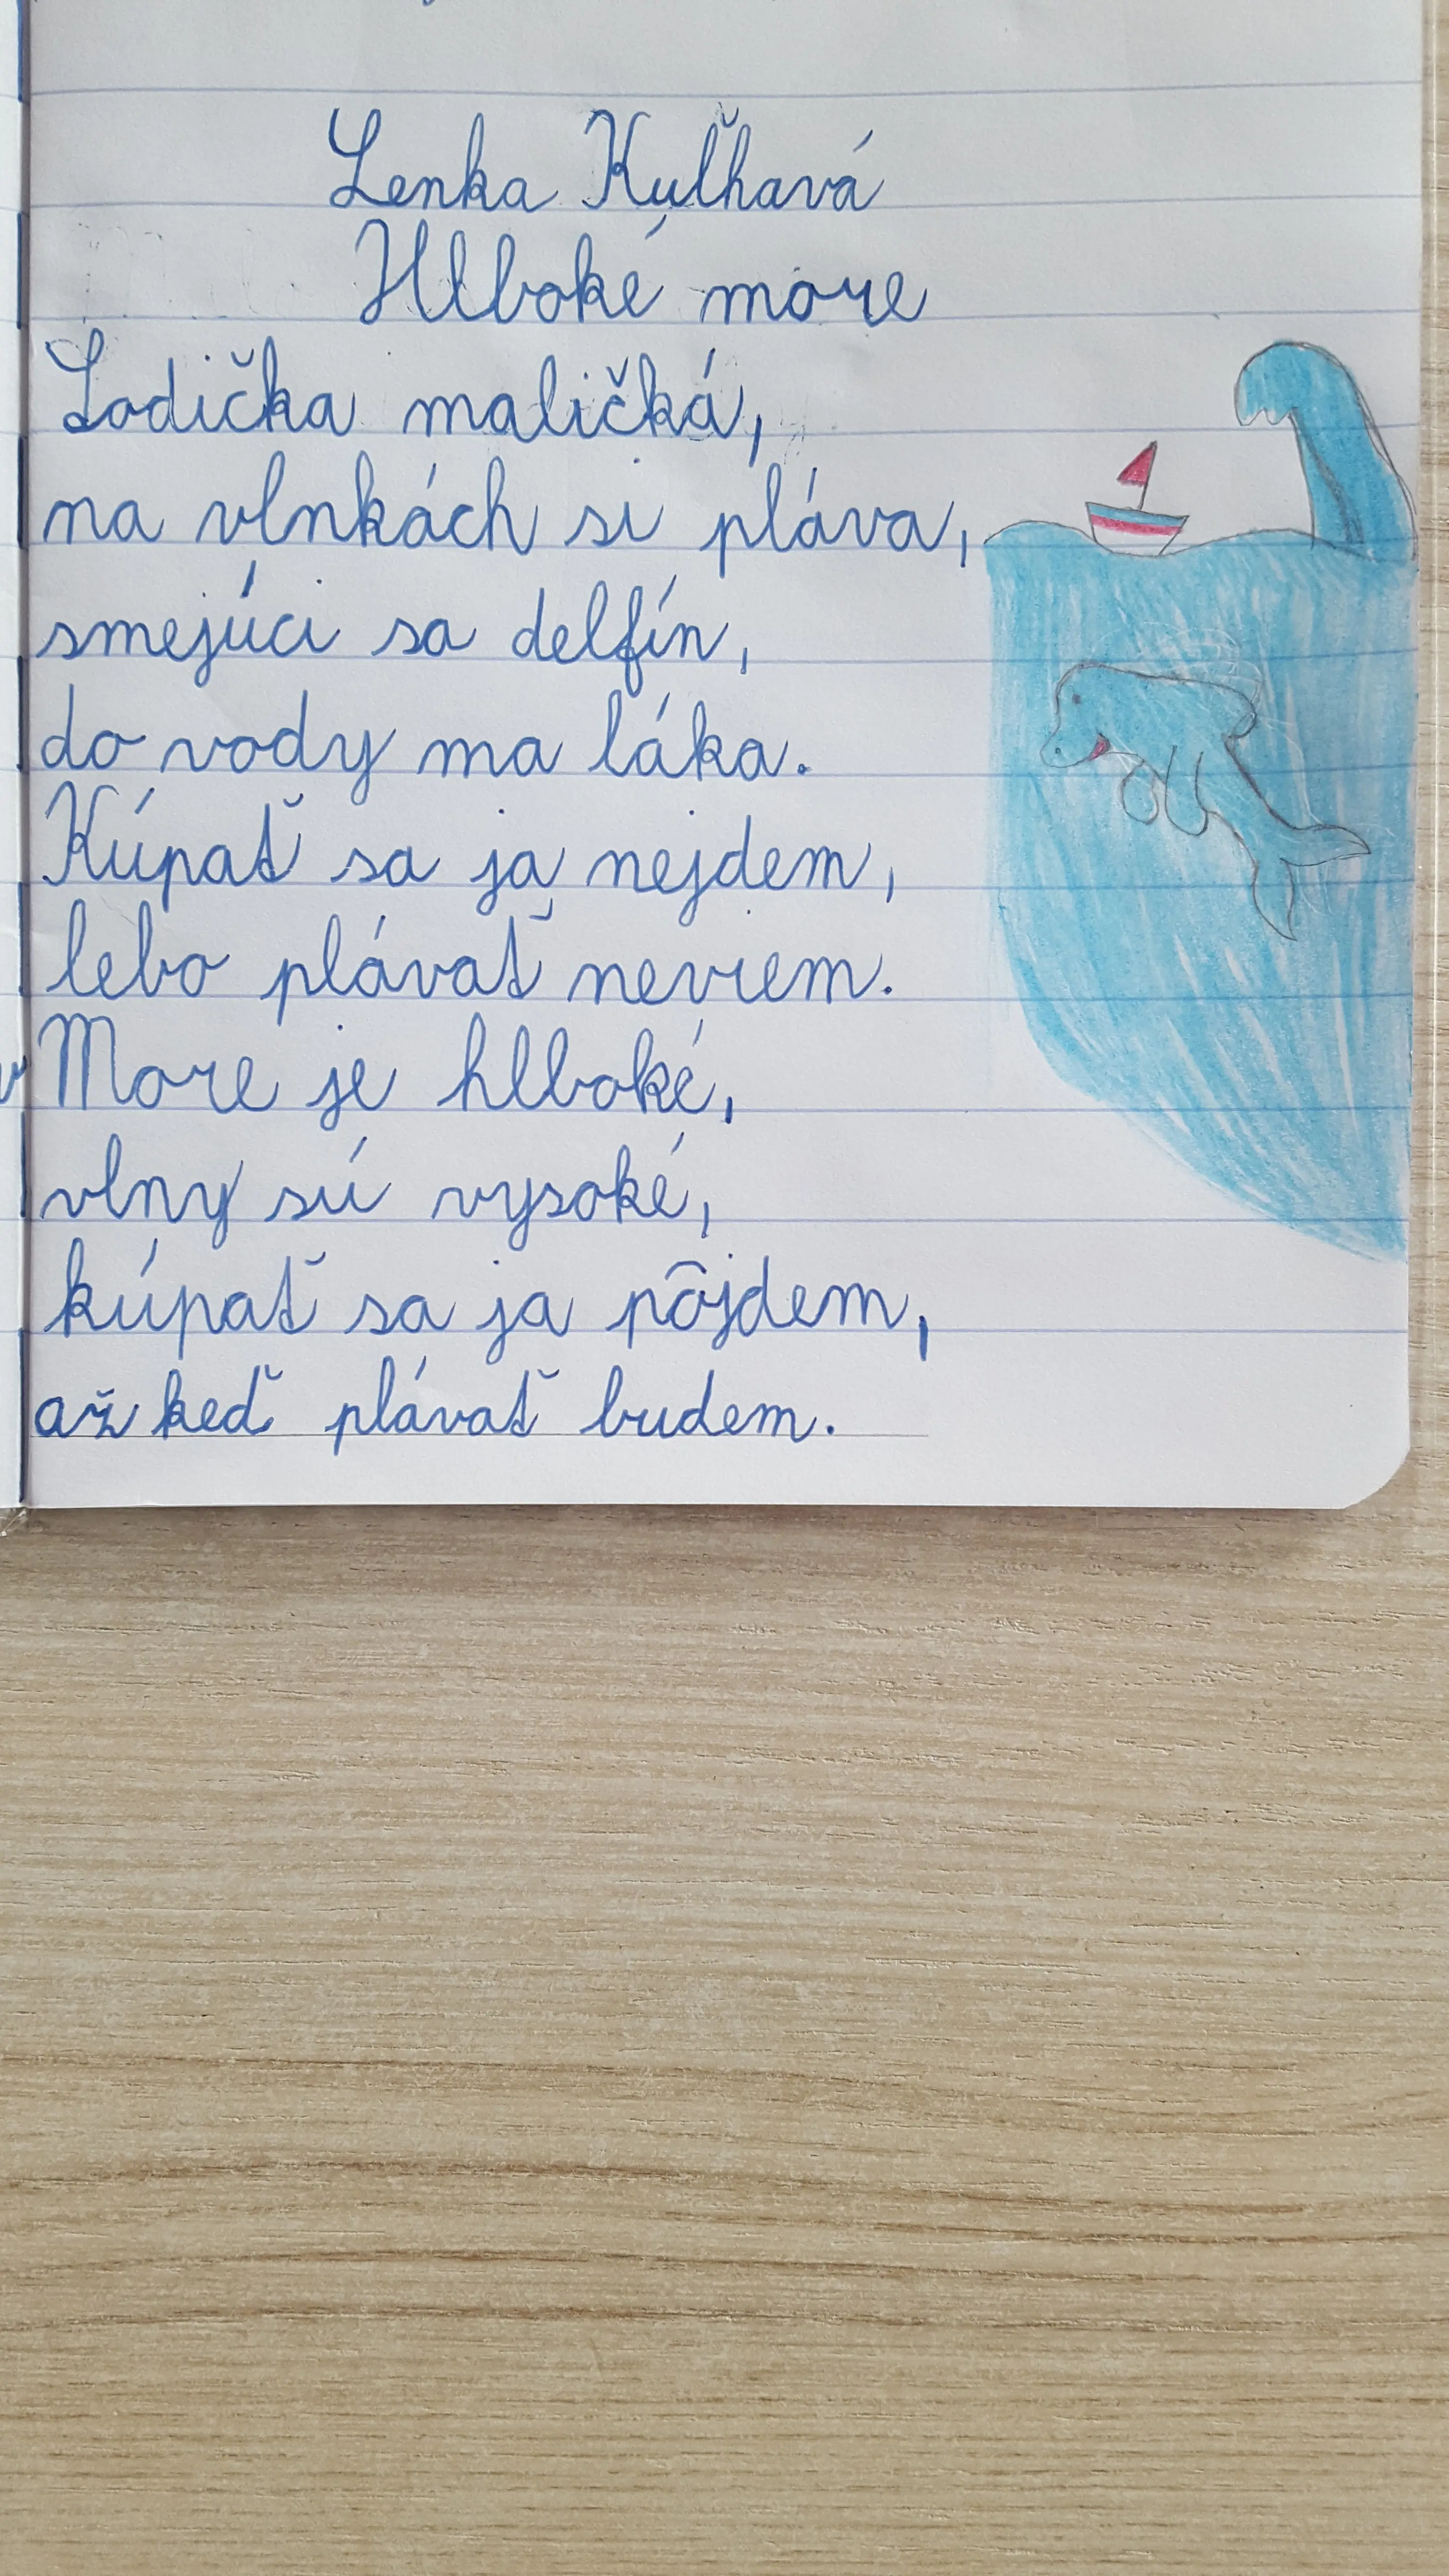 Lenka Kuľhavá
Hlboké more
Lodička maličká,
na vlnkách si pláva,
smejúci sa delfín,
do vody ma láka.
Kúpať sa ja nejdem,
lebo plávať neviem.
More je hlboké,
vlny sú vysoké,
kúpať sa ja pôjdem,
až keď plávať budem.